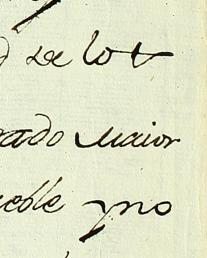 d de los
ado maior
eble y no